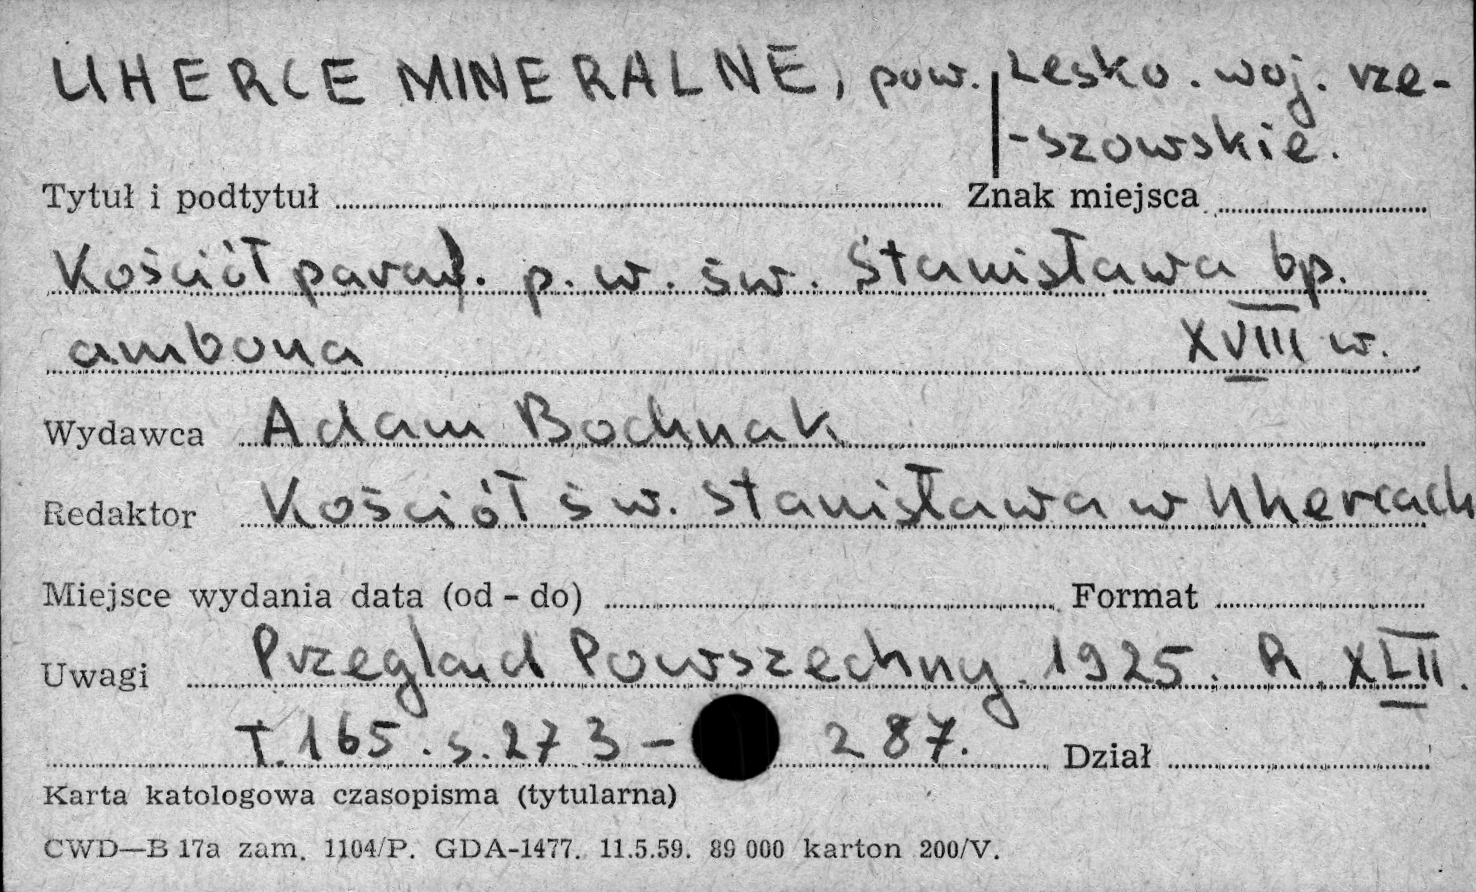 UHERCE MINERALNE, pow. Lesko. woj. rze-
-szowskie.
Tytuł i podtytuł Znak miejsca
Kościół paraf. p. w. św. Stanisława bp.
ambona XVIII w.
Wydawca Adam Bochnak
Redaktor Kościół św. Stanisława w Uhercach
Miejsce wydania data (od - do) Format
Uwagi Przegląd Powszechny. 1925. R. XLII.
T. 165. s. 273 - 287. Dział
Karta katologowa czasopisma (tytularna)
CWD—B 17a zam. 1104/P. GDA-1477. 11.5.59. 89 000 karton 200/V.